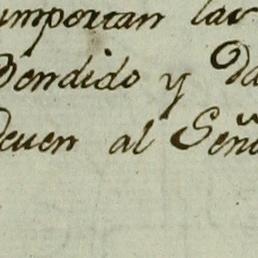 importan las
Vendido y Da
Deven al Seño